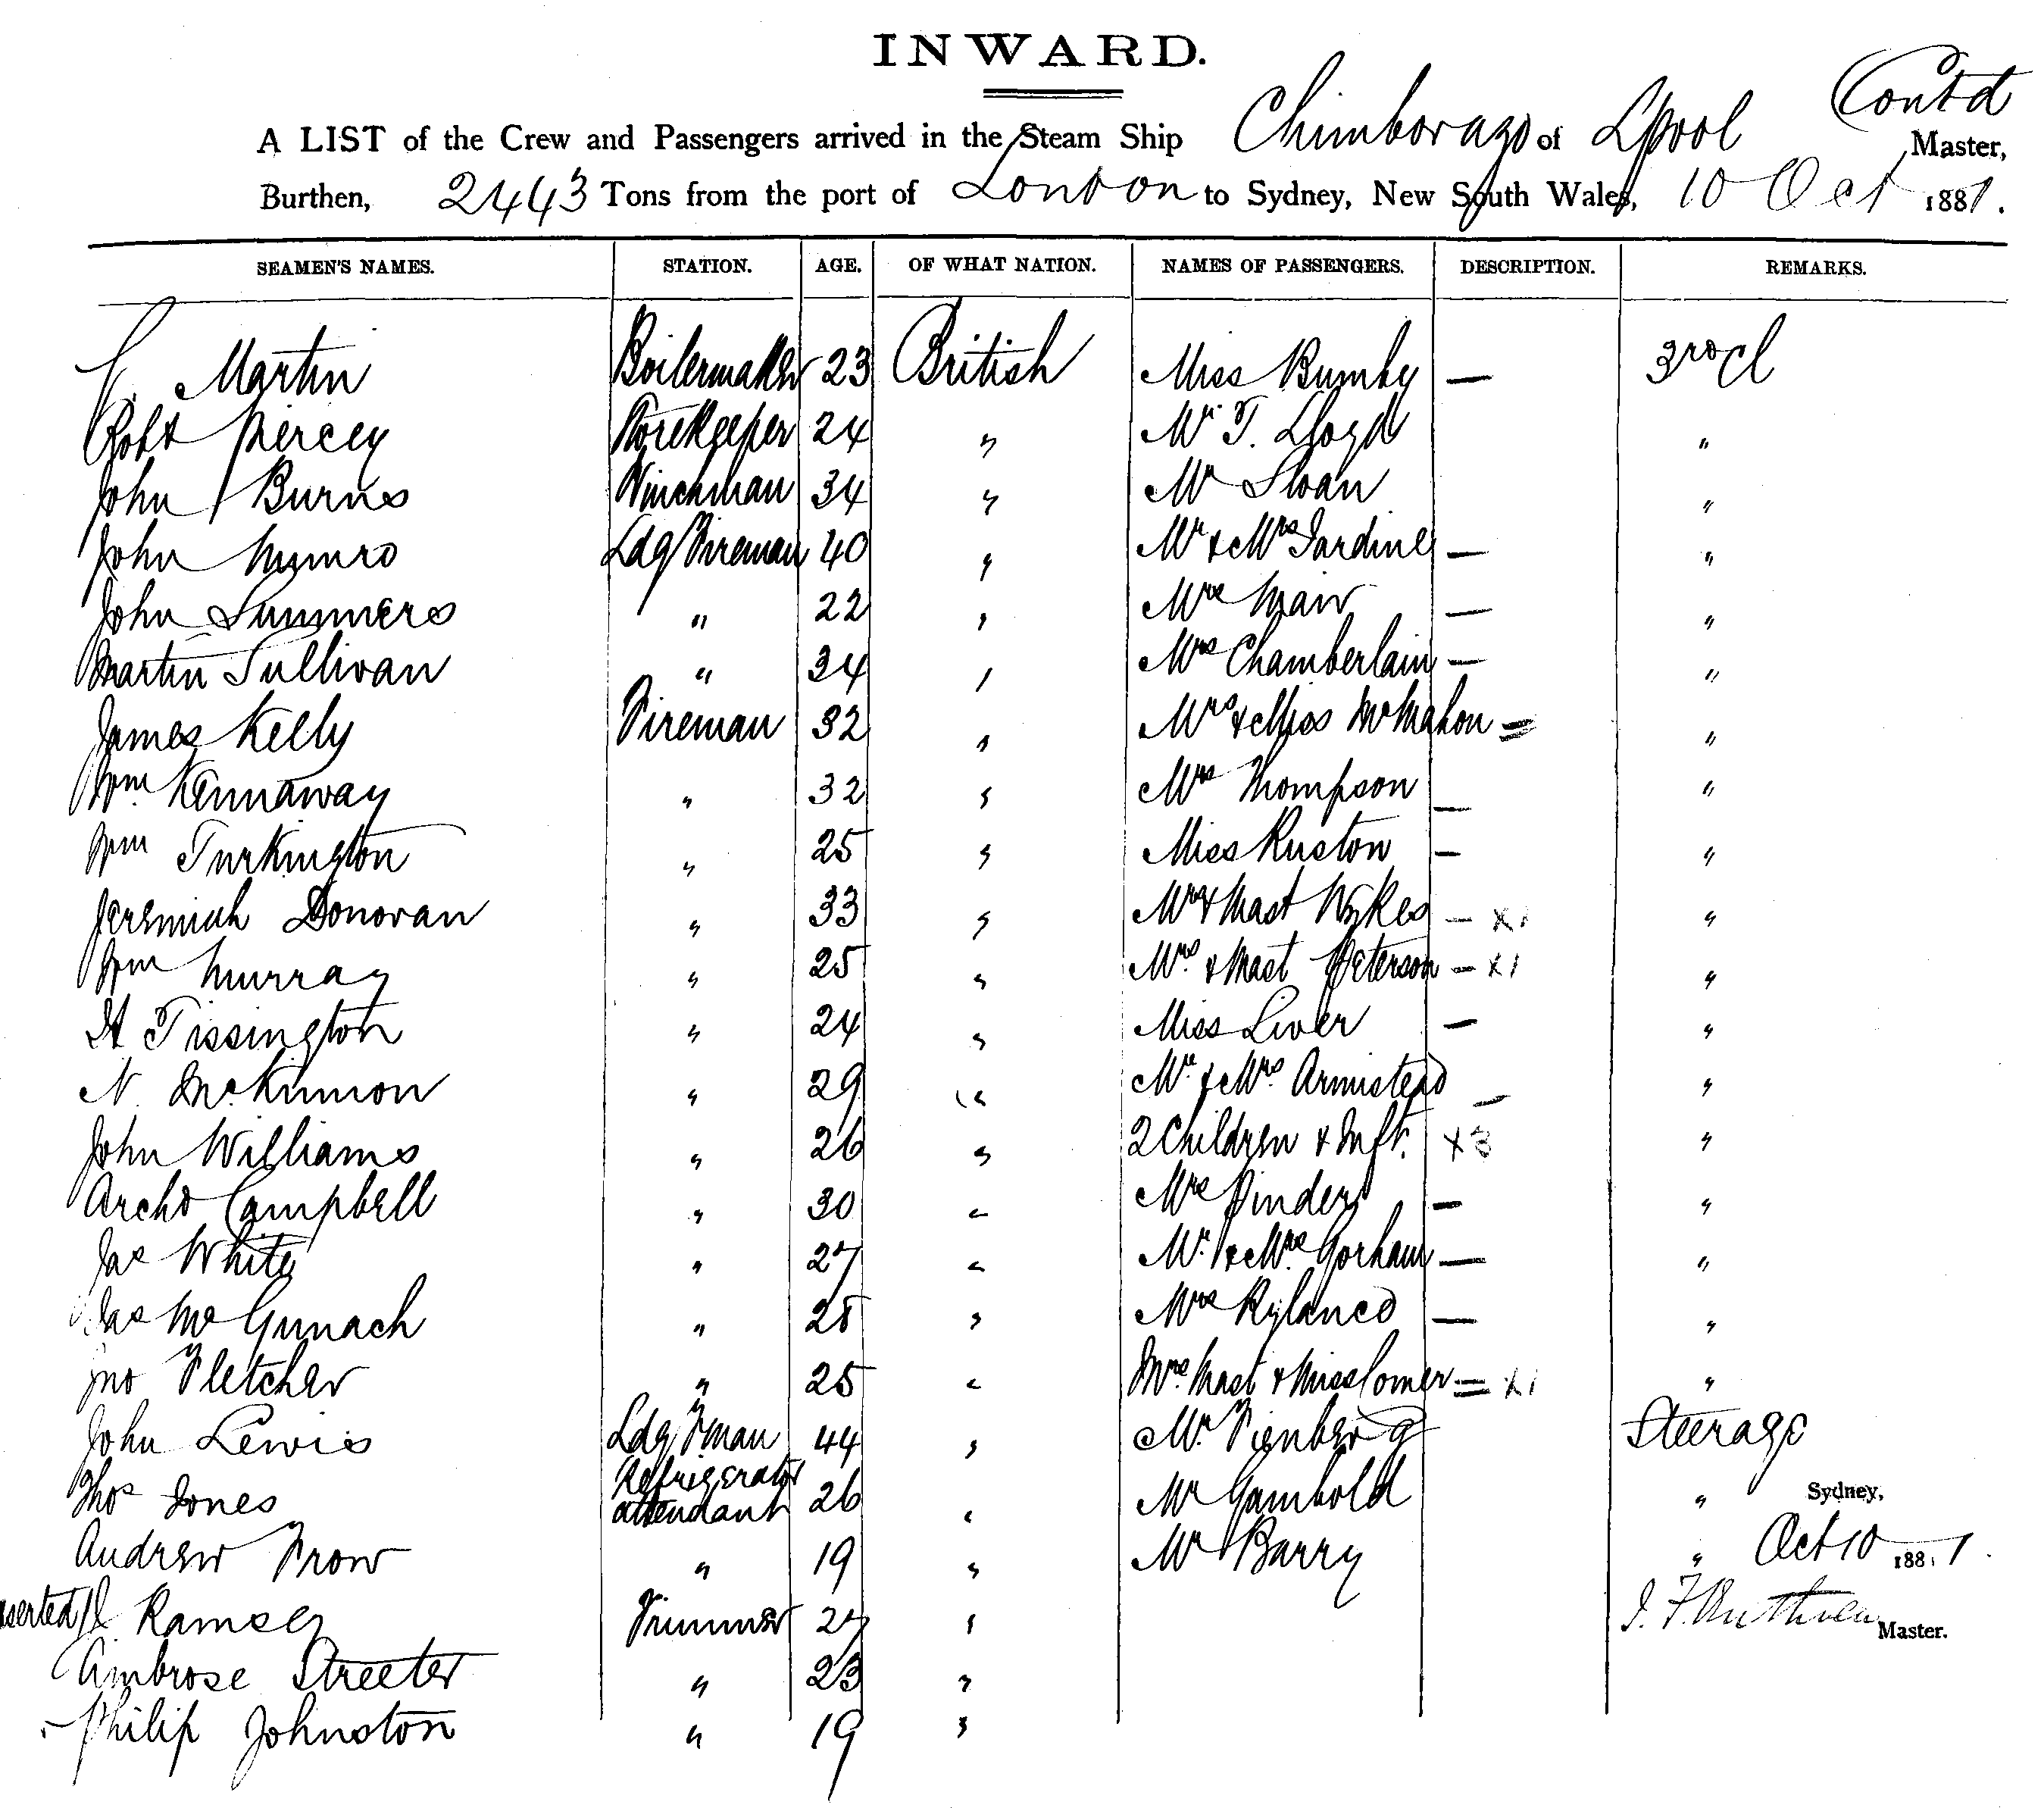 INWARD.
Contd
A LIST of the Crew and Passengers arrived in the Steam Ship Chimborazo of Lpool Master,
Burthen, 2443 Tons from the port of London to Sydney, New South Wales, 10 Oct 1881.
SEAMEN'S NAMES. STATION. AGE. OF WHAT NATION. NAMES OF PASSENGERS. DESCRIPTION. REMARKS.
Martin Boilermaker 23 British Miss Bumby — 3rd Cl
Robt Piercey Storekeeper 24 " Mr T. Lloyd "
John Burns Winchman 34 " Mr Sloan "
John Munro Ldg Fireman 40 " Mr & Mrs Jardine — "
John Summers " 22 " Mrs Mair — "
Martin Sullivan " 34 " Mrs Chamberlain — "
James Kelly Fireman 32 " Mrs & Miss McMahon = "
Wm Kennaway " 32 " Mrs Thompson — "
Wm Turkington " 25 " Miss Ruston — "
Jeremiah Donovan " 33 " Mrs & Mast Wykes — x1 "
Wm Murray " 25 " Mrs & Mast Peterson — x1 "
H Tissington " 24 " Miss Liver — "
N. McKinnon " 29 " Mr & Mrs Armistead — "
John Williams " 26 " 2 Children & Inft. x3 "
Archd Campbell " 30 " Mrs Pinder — "
Jas White " 27 " Mr & Mrs Gorham — "
Jas McGunach " 28 " Mrs Rylance — "
Jno Fletcher " 25 " Mrs Mast & Miss Comer = x1 "
John Lewis Ldg Fman 44 " Mr Fienberg Steerage
Thos Jones Refrigerator attendant 26 " Mr Gambold " Sydney,
Andrew Frow " 19 " Mr Barry " Oct 10 1881.
J Ramsey Trimmer 27 " J. F. Ruthven Master.
Ambrose Streeter " 23 "
Philip Johnston " 19 "